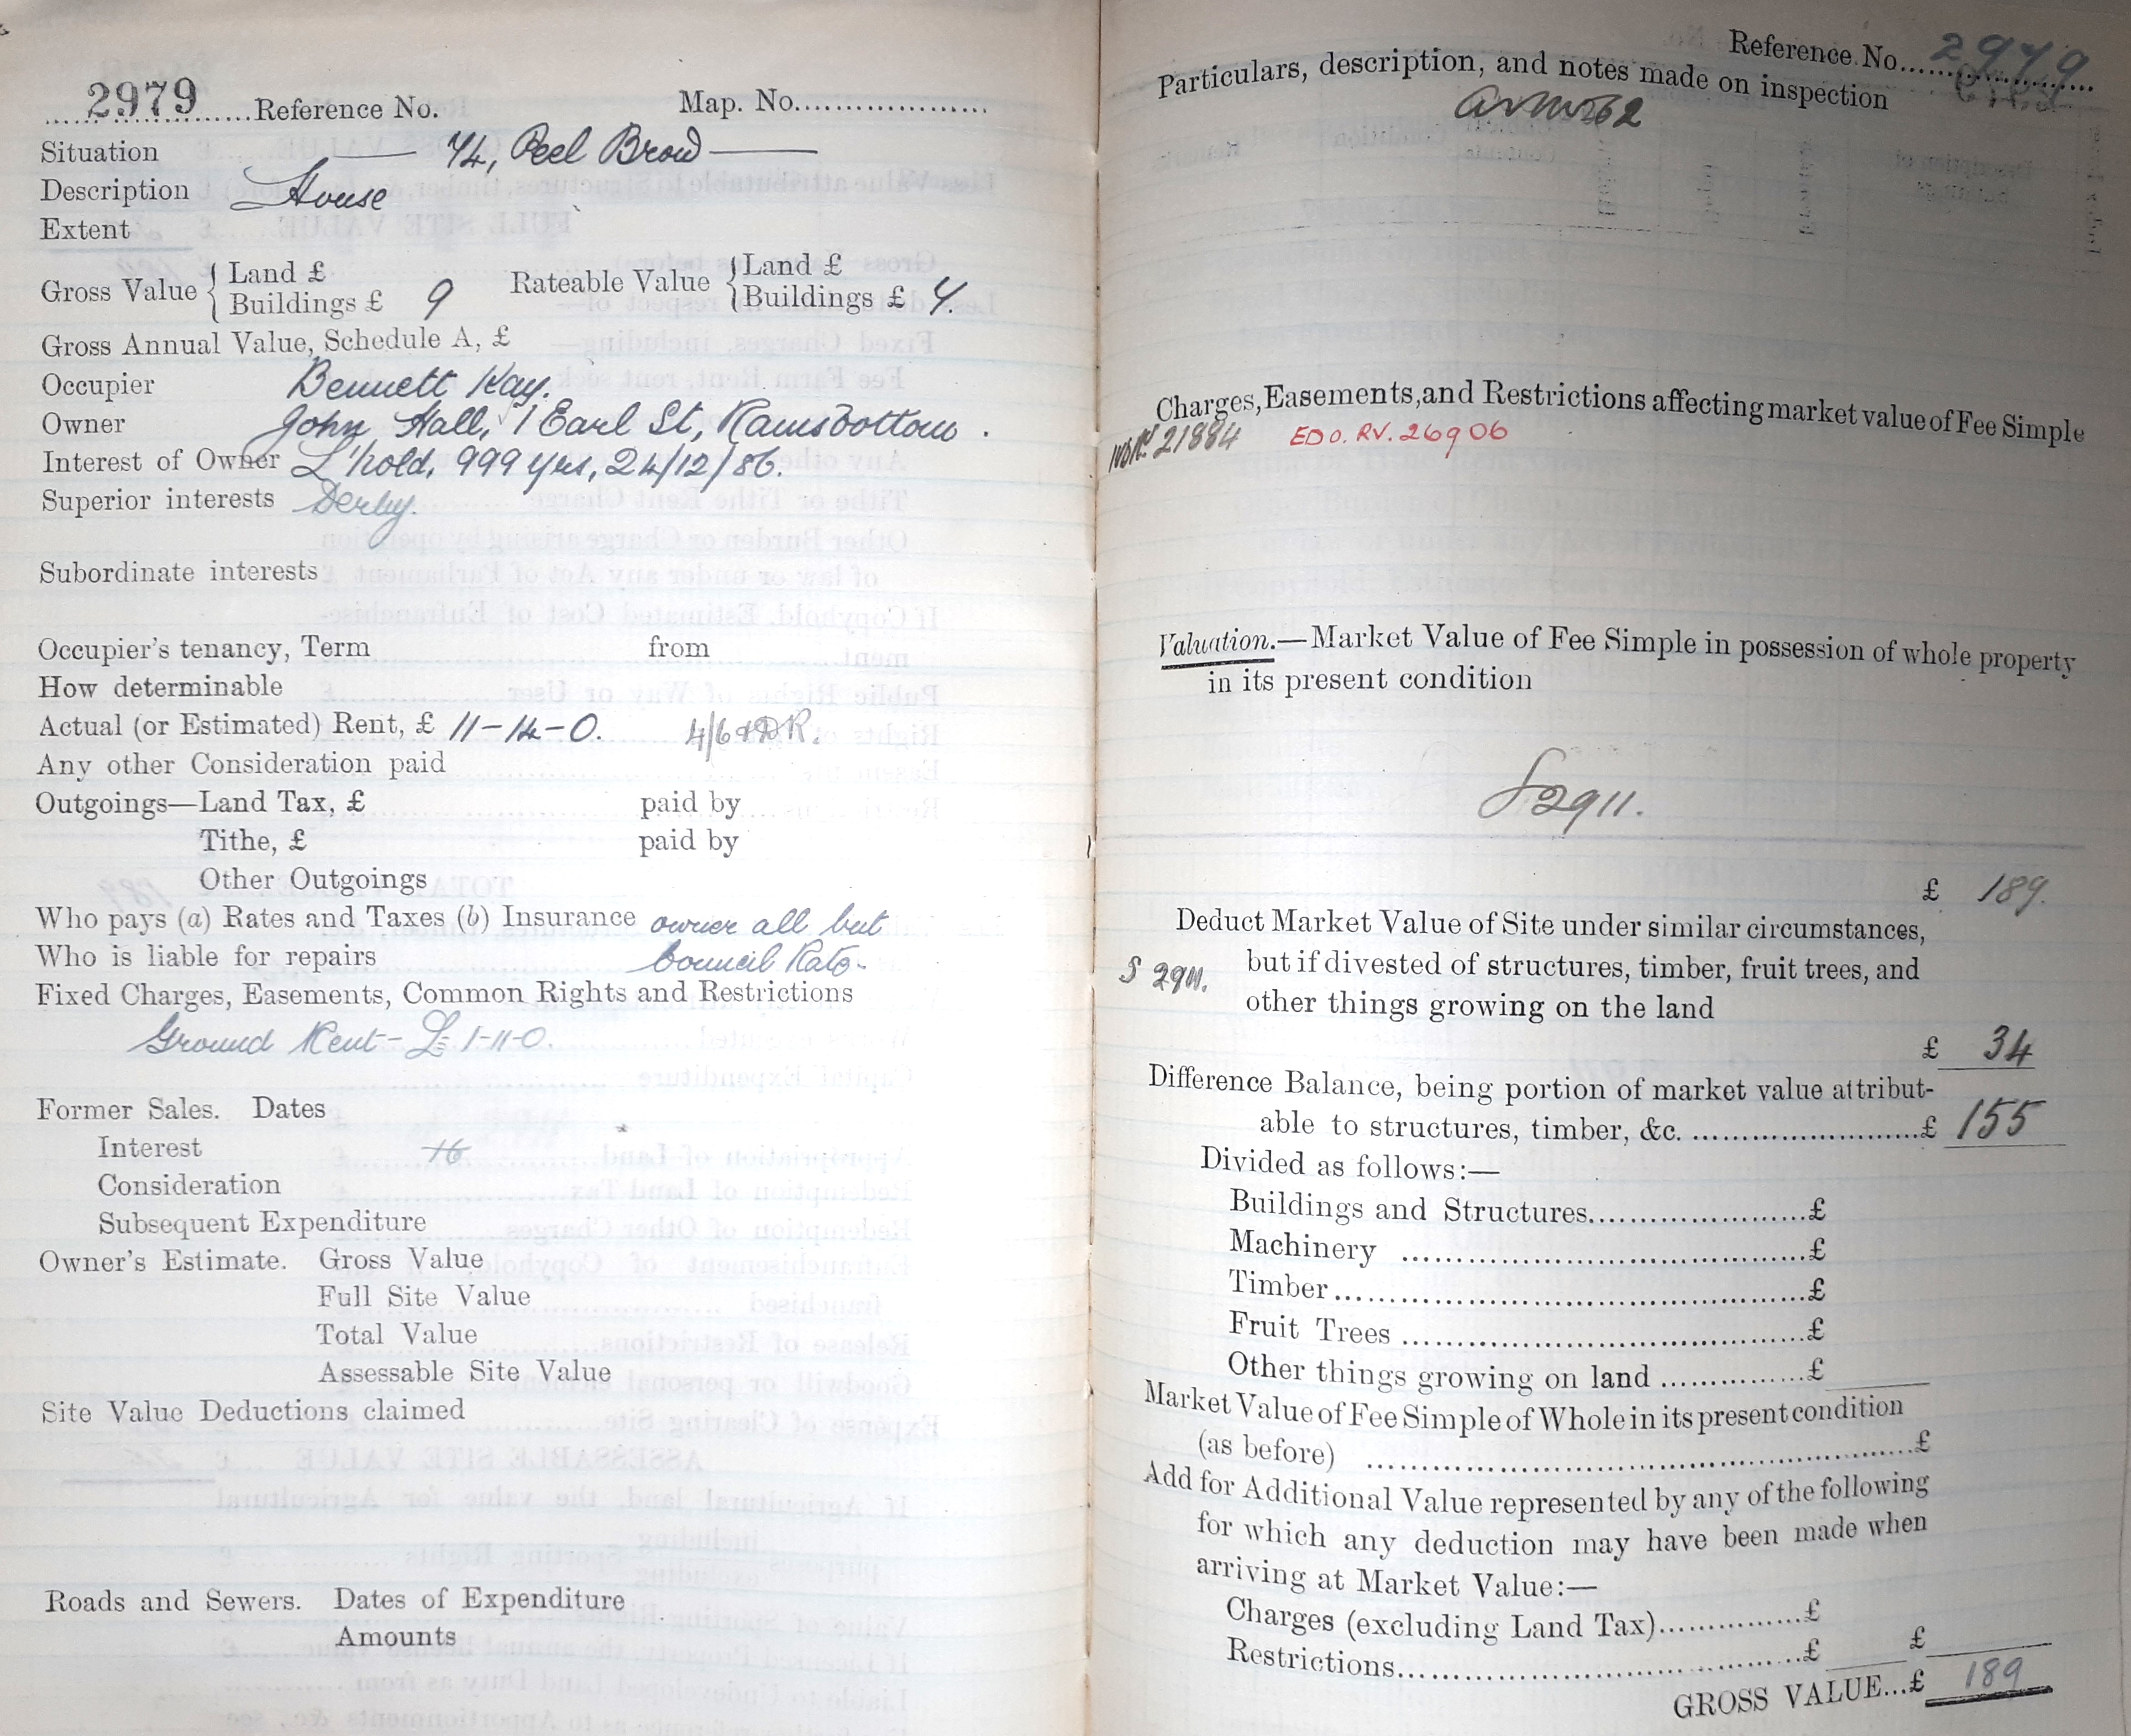 2979 Reference No. Map. No.
Situation — 74, Peel Brow —
Description House
Extent
Gross Value { Land £ Rateable Value { Land £
Buildings £ 9 Buildings £ 7.
Gross Annual Value, Schedule A, £
Occupier Bennett Kay.
Owner John Hall, 1 Earl St, Ramsbottom.
Interest of Owner L'hold, 999 yrs, 24/12/86.
Superior interests Derby.
Subordinate interests
Occupier's tenancy, Term from
How determinable
Actual (or Estimated) Rent, £ 11-14-0. 4/6
Any other Consideration paid
Outgoings—Land Tax, £ paid by
Tithe, £ paid by
Other Outgoings
Who pays (a) Rates and Taxes (b) Insurance owner all but
Who is liable for repairs Council Rate.
Fixed Charges, Easements, Common Rights and Restrictions
Ground Rent - £ 1-11-0.
Former Sales. Dates
Interest
Consideration
Subsequent Expenditure
Owner's Estimate. Gross Value
Full Site Value
Total Value
Assessable Site Value
Site Value Deductions claimed
Roads and Sewers. Dates of Expenditure
Amounts
Reference No. 2979
Particulars, description, and notes made on inspection
Charges, Easements, and Restrictions affecting market value of Fee Simple
21884 EDO. RV. 26906
Valuation.—Market Value of Fee Simple in possession of whole property
in its present condition
S 2911.
£ 189.
Deduct Market Value of Site under similar circumstances,
S 2911. but if divested of structures, timber, fruit trees, and
other things growing on the land
£ 34
Difference Balance, being portion of market value attribut-
able to structures, timber, &c. £ 155
Divided as follows:—
Buildings and Structures £
Machinery £
Timber £
Fruit Trees £
Other things growing on land £
Market Value of Fee Simple of Whole in its present condition
(as before) £
Add for Additional Value represented by any of the following
for which any deduction may have been made when
arriving at Market Value:—
Charges (excluding Land Tax) £
Restrictions £ £
GROSS VALUE...£ 189